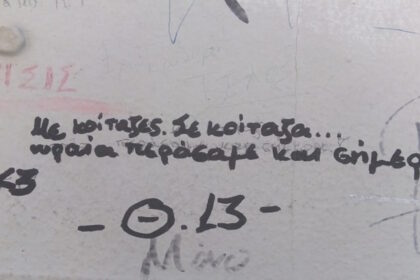 ΙΣΙΣ
Με κοίταξες. Σε κοίταξα...
ωραία περάσαμε και σήμερ
23
- Θ.13 -